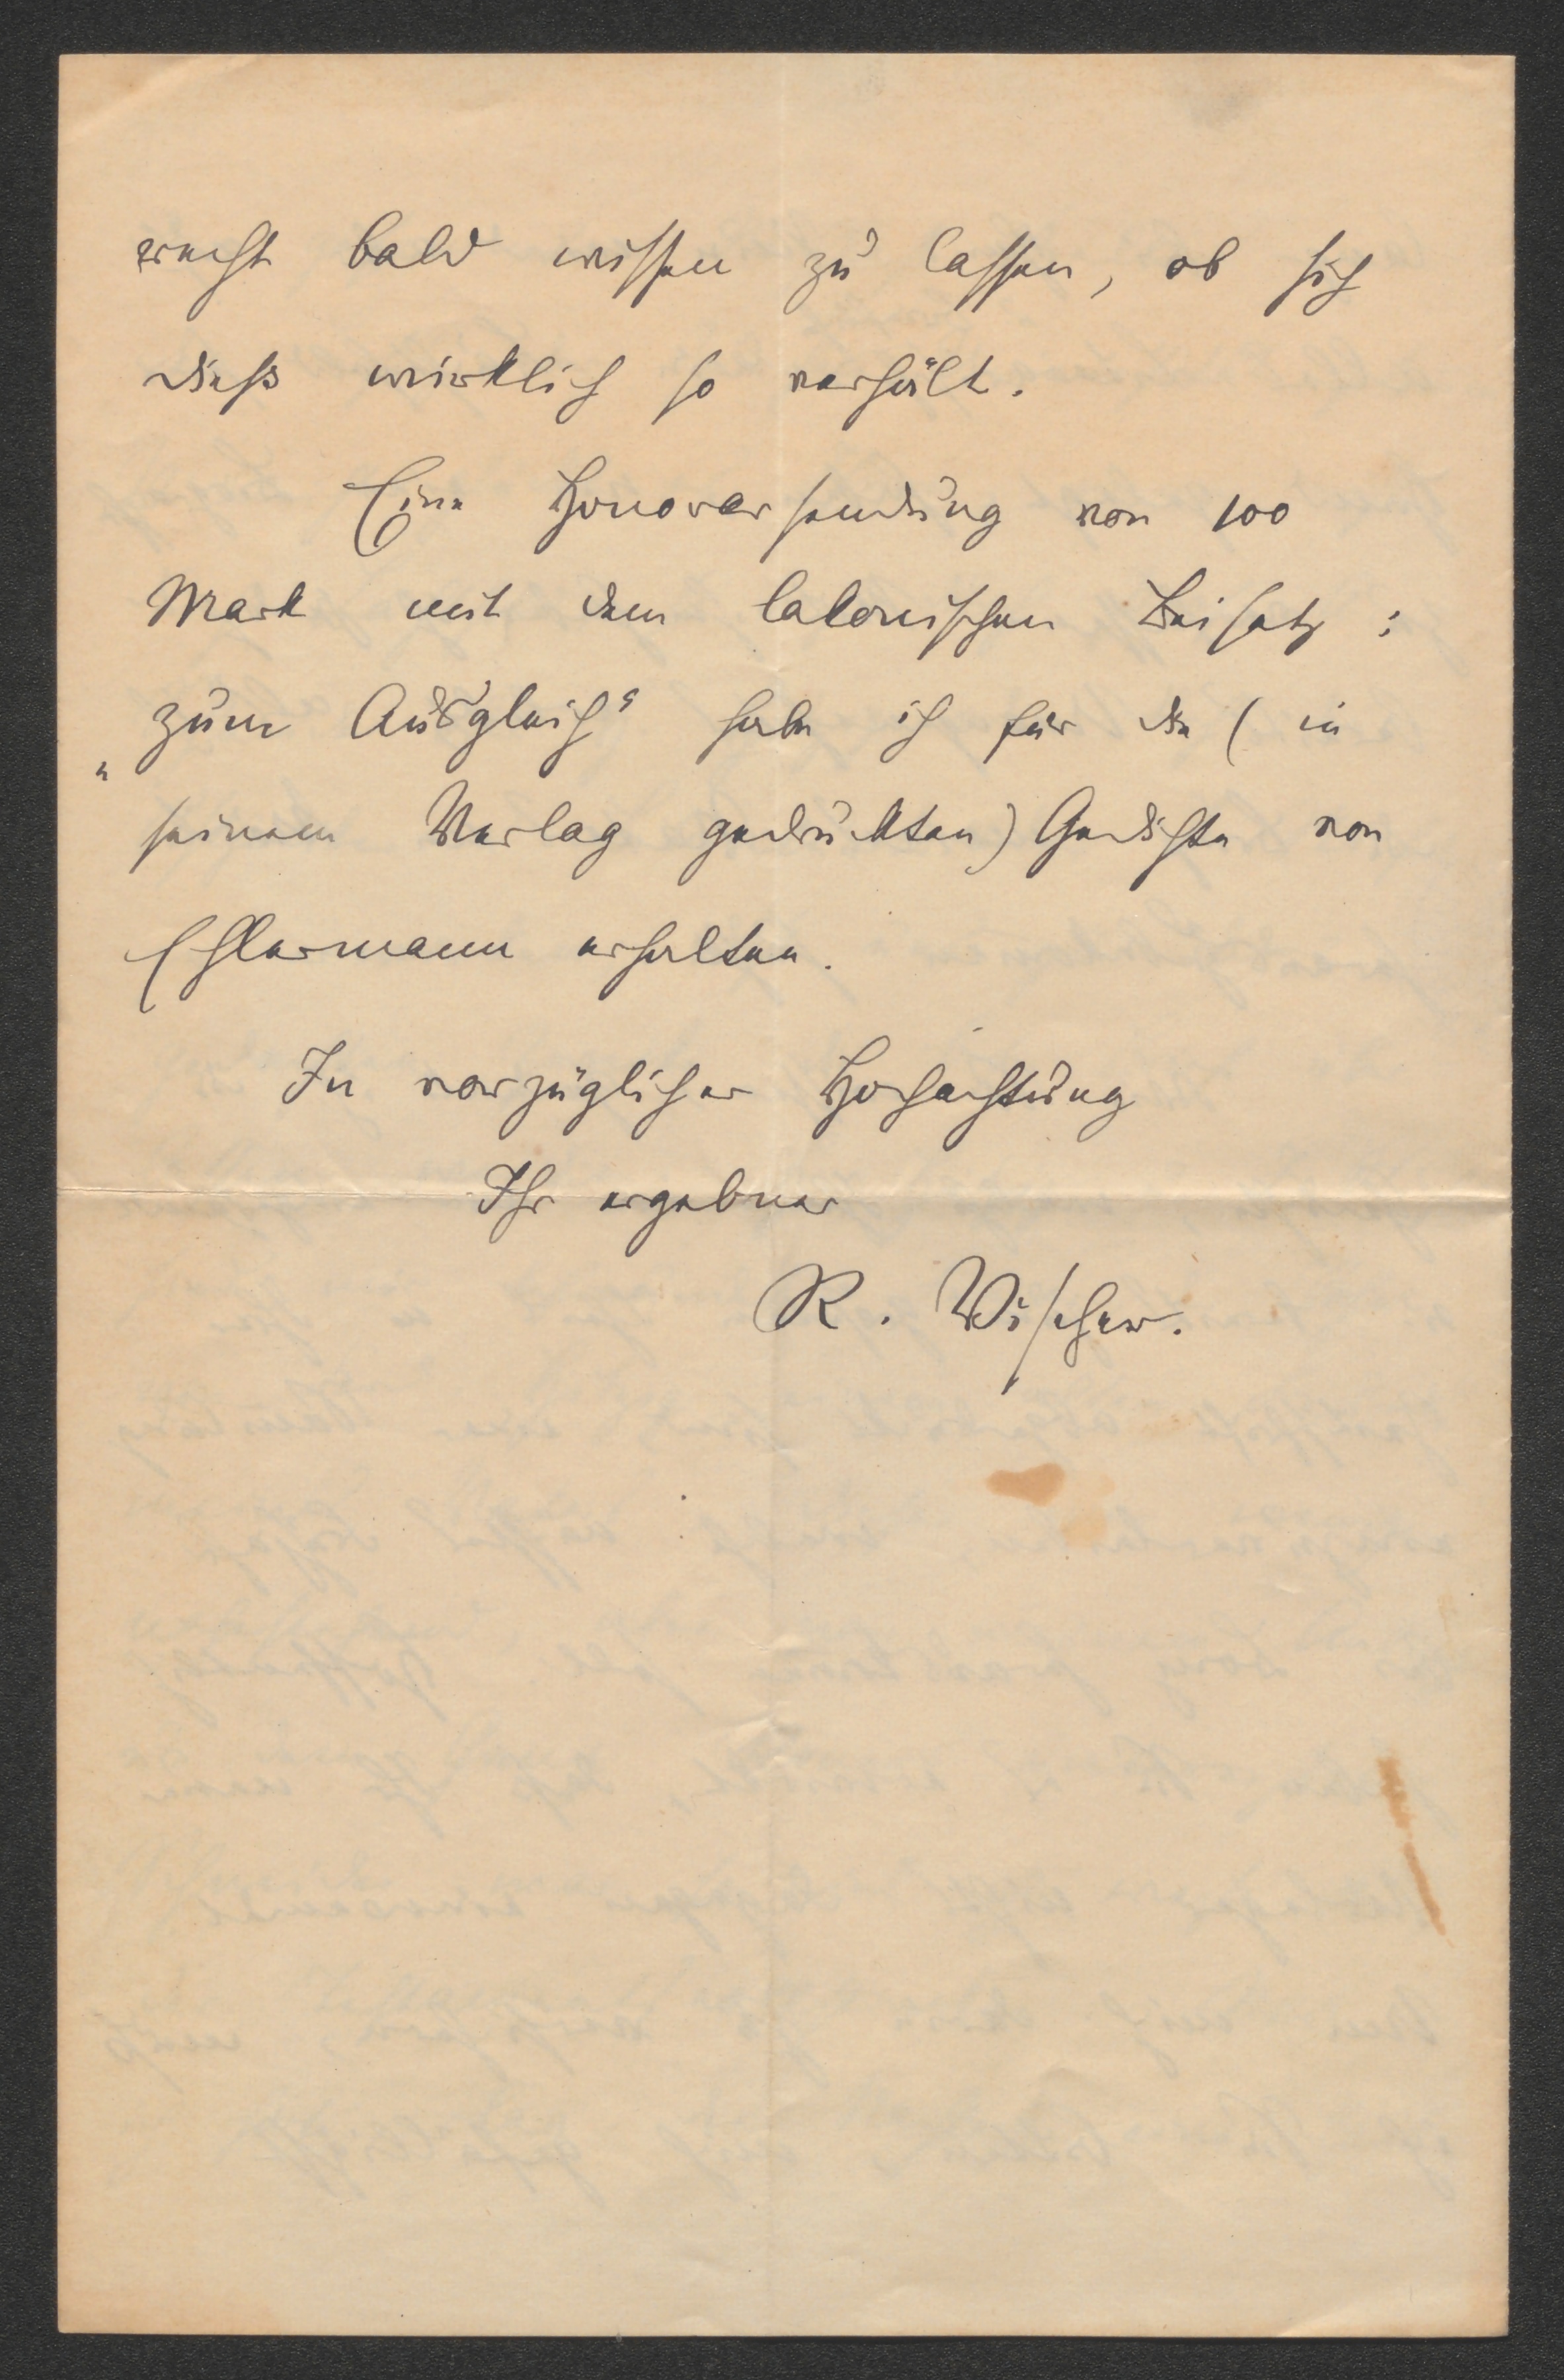 recht bald wissen zu lassen, ob sich
dieß wirklich so verhält.
Eine Honorarsendung von 100
Mark mit dem lakonischen Beisatz:
„zum Ausgleich“ habe ich für die (in
seinem Verlag gedruckten) Gedichte von
Ehlermann erhalten.
In vorzüglicher Hochachtung
Ihr ergebner
R. Vischer.